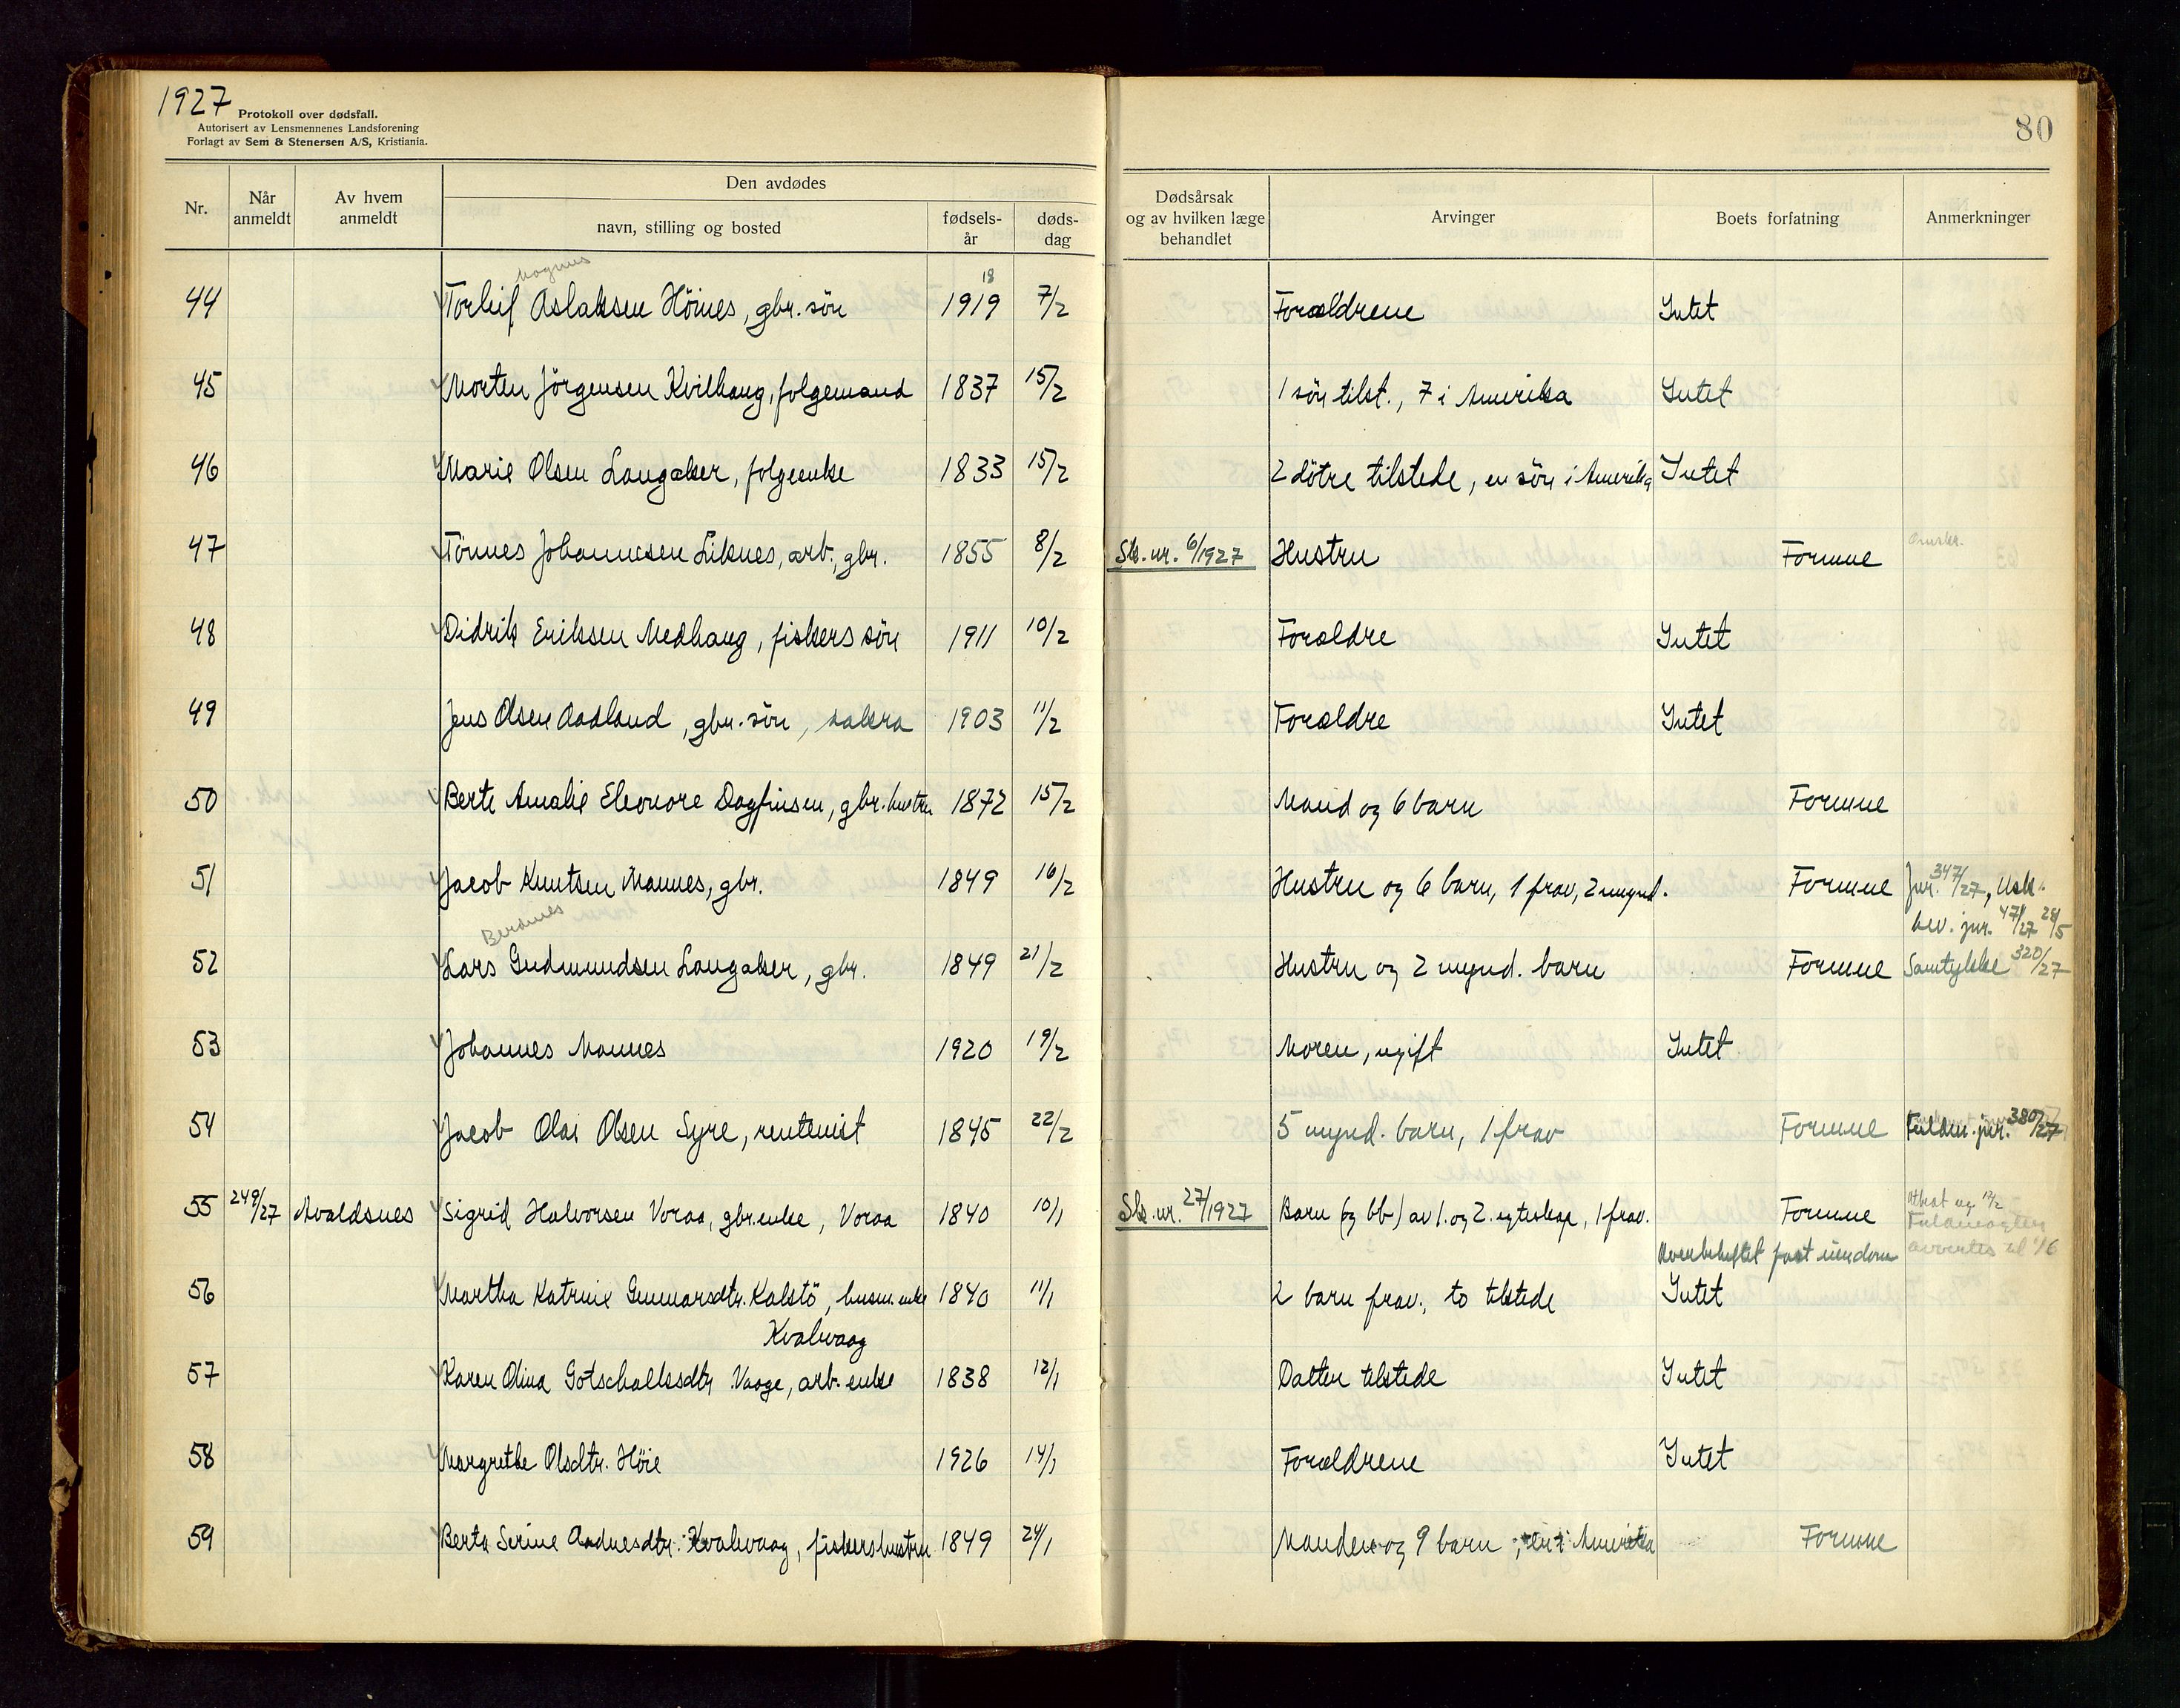 1927
Protokoll over dødsfall.
Autorisert av Lensmennenes Landsforening
Forlagt av Sem & Stenersen A/S, Kristiania.
80
Nr. Når anmeldt Av hvem anmeldt Den avdødes navn, stilling og bosted fødsels-år døds-dag Dødsårsak og av hvilken læge behandlet Arvinger Boets forfatning Anmerkninger
Magnus 18
44 Torleif Aslaksen Höines, gbr. sön 1919 7/2 Forældrene Intet
45 Morten Jörgensen Kvilhaug, folgemand 1837 15/2 1 sön tilst., 7 i Amerika Intet
46 Marie Olsen Langaker, folgeenke 1833 15/2 2 dötre tilstede, en sön i Amerika Intet
47 Tönnes Johannesen Liknes, arb., gbr. 1855 8/2 Sk. nr. 6/1927 Hustru Formue
48 Didrik Eriksen Medhaug, fiskers sön 1911 10/2 Forældre Intet
49 Jens Olsen Aadland, gbr. sön, 1903 11/2 Forældre Intet
50 Berte Amalie Eleonore Dagfinsen, gbr. hustru 1872 15/2 Mand og 6 barn Formue
51 Jacob Knutsen Mannes, gbr. 1849 16/2 Hustru og 6 barn, 1 frav, 2 mynd. Formue Jnr. 347/27, Usk.
bev. jnr. 47/27 28/5
52 Lars Gudmundsen Langaker, gbr. 1849 21/2 Hustru og 2 mynd. barn Formue Samtykke 320/27
53 Johannes Mannes 1920 19/2 Moren, ugift Intet
54 Jacob Olai Olsen Syre, rentenist 1845 22/2 5 mynd. barn, 1 frav Formue Fuldm. jnr. 380/27
55 249/27 Avaldsnes Sigrid Halvorsen Voraa, gbr.enke, Voraa 1840 10/1 Sk. nr. 27/1927 Barn (og bb) av 1. og 2. egteskap, 1 frav. Formue
Fuldmagten
Uven behæftet fast eiendom avventes til 1/6
56 Martha Katrine Gunnarsdtr. Kalstö, husm. enke 1840 11/1 2 barn frav., to tilstede Intet
Kvalvaag
57 Karen Olina Gotschalksdtr Vaage, arb. enke 1838 12/1 Datter tilstede Intet
58 Margrethe Olsdtr. Höie 1926 14/1 Forældrene Intet
59 Berta Serine Andnesdtr. Kvalvaag, fiskershustru 1849 24/1 Manden og 9 barn, en i Amerika Formue